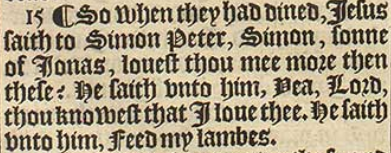 15 ¶ So when they had dined, Jesus
saith to Simon Peter, Simon, sonne
of Jonas, louest thou mee more then
these? He saith vnto him, Yea, Lord,
thou knowest that I loue thee. He saith
vnto him, Feed my lambes.